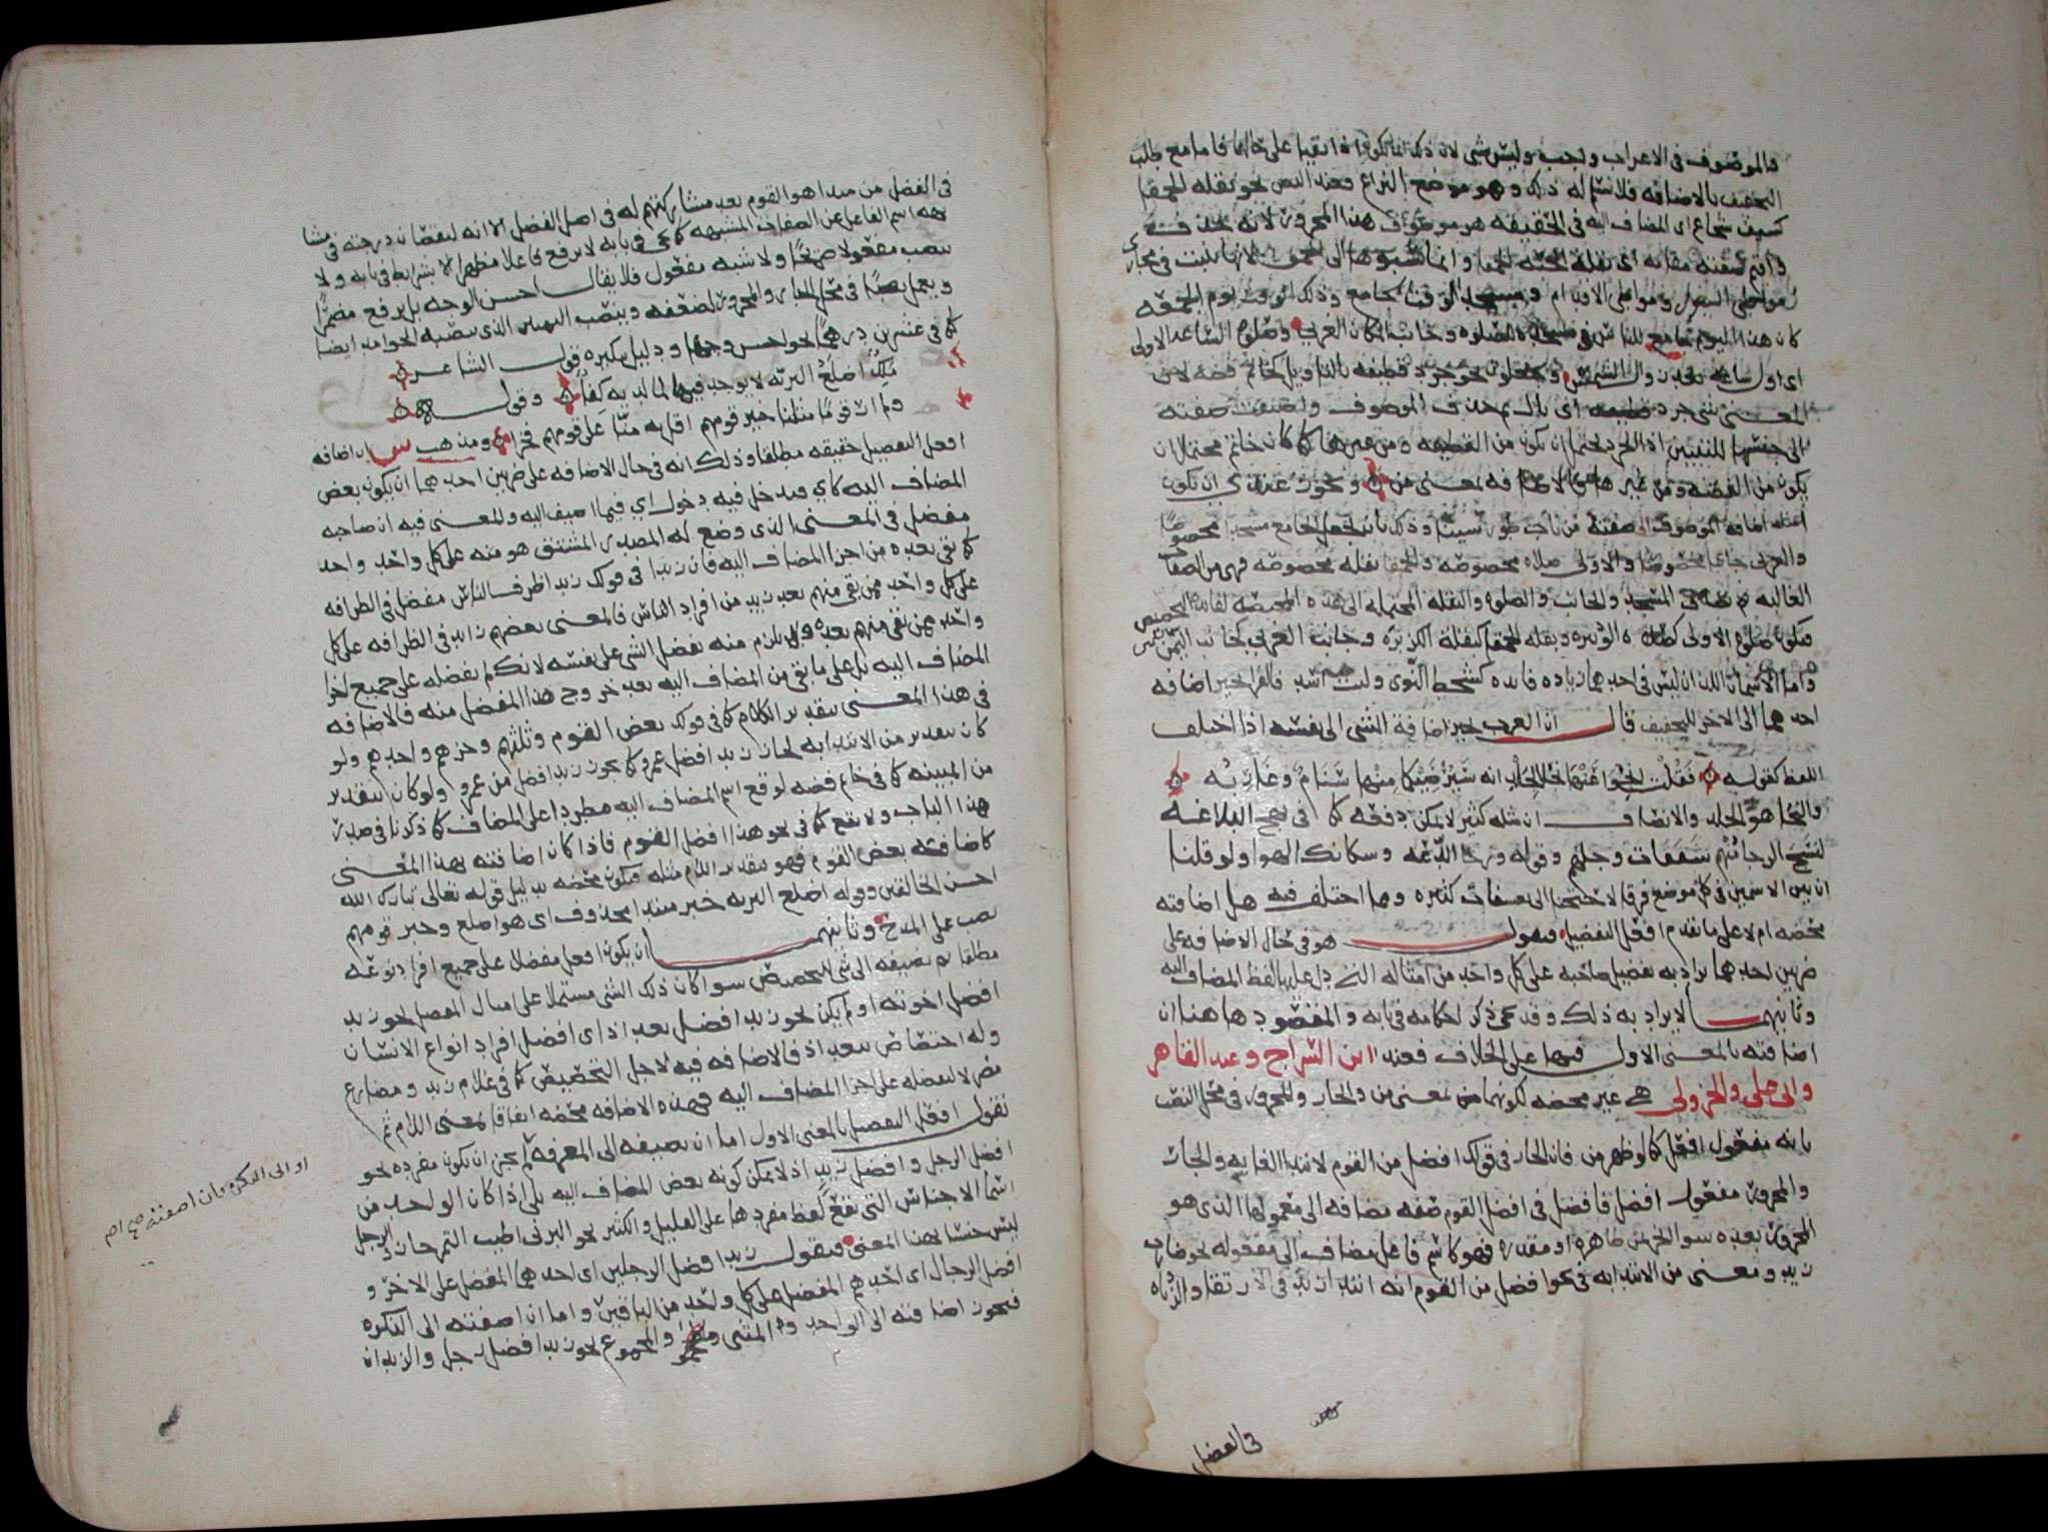 والموصوف في الاعراب وليس بشي لان ذلك انما يكون اذا بقيا على حالهما فاما مع طلب
التخفيف بالاضافه فلا نسلم له ذلك وهو موضع النزاع وعند البصريين نحو بقله الحمقا
كسيف شجاع اى المضاف اليه في الحقيقه هو موصوف هذا المجرور الا انه حذف
واقيم صفته مقامه اى بقلة الحبه الحمقا وانما نسبوها الى الحمق لانها تنبت في مجارى
السيول ومواطي الاقدام ومسجد الوقت الجامع وذلك الوقت يوم الجمعه
كان هذا اليوم جامع للناس في مسجده للصلوه وجانب المكان الغربي وصلوه الساعه الاولى
اى اول ساعه بعد زوال الشمس وجعلوا نحو جرد قطيفه بالتاويل كخاتم فضه لان
المعنى شي جرد اى بال ثم حذف الموصوف واضيفت صفته
الى جنسها للتبيين اذ الجرد يحتمل ان يكون من القطيفه ومن غيرها كما كان خاتم محتملا ان
يكون من الفضه ومن غيرها فالاضافه بمعنى من ويجوز عندى ان يكون
امثله اضافه الموصوف الى صفته من باب طور سيناء وذلك بان يجعل الجامع مسجدا مخصوصا
والغربي جانبا مخصوصا والاولى صلاه مخصوصه والحمقا بقله مخصوصه فهى من الصفات
الغالبه ثم يضاف المسجد والجانب والصلوه والبقله المحتمله الى هذه المختصه لفائده التخصيص
فيكون صلوه الاولى كصلاه الوتيره وبقله الحمقا كبقلة الكزبره وجانب الغربي كجانب اليمين
واما الاسمان اللذان ليس في احدهما زياده فايده كشحط النوى وليث اسد فالفرا يجيز اضافه
احدهما الى الاخر للتخفيف قال ان العرب يجيز اضافة الشى الى نفسه اذا اختلف
اللفظ كقوله فقلت انجوا عنها نجا الجلد انه سيرضيكما منها سنام وغاربه
والنجا هو الجلد والانصاف ان مثله كثير لا يمكن دفعه كما في نهج البلاغه
لنسخ الرجا منهم شفقات وجلهم وقوله ورخا الدعه وسكائك الهوا ولو قلنا
ان بين الاسمين في كل موضع فرقا لاحتجنا الى تعسفات كثيره ومما اختلف فيه هل اضافته
محضه ام لا على ما تقدم افعل التفضيل فنقول هو في حال الاضافه على
ضربين احدهما يراد به تفضيل صاحبه على كل واحد من امثاله التي دل عليها لفظ المضاف اليه
وثانيهما لا يراد به ذلك وقد يجي ذكر احكامه في بابه والمقصود هاهنا ان
اضافته بالمعنى الاول فيها على الخلاف فعند ابن السراج وعبد القاهر
وابى على والجزولى هى غير محضه لكونها بمعنى من والجار والمجرور في محل النصب
بانه مفعول افعل كما لو ظهر من فان الجار في قولك افضل من القوم لابتدا الغايه والجار
والمجرور مفعول افضل فافضل في افضل القوم صفه مضافه الى معمولها الذى هو
المجرور بعده سوا كان من ظاهره او مقدره فهو كاسم فاعل مضاف الى مفعوله نحو ضارب
زيد ومعنى من الابتدائيه في نحو افضل من القوم انه ابتدا زيد في الارتقا والزياده
في الفضل
في الفضل من مبدا هو القوم بعد مشاركتهم له في اصل الفضل الا انه لنقصان درجته في مشا
بهه اسم الفاعل عن الصفات المشبهه كما يجى في بابه لا يرفع فاعلا مظهرا الا بشرايط في بابه ولا
ينصب مفعولا صريحا ولا شبه مفعول فلا يقال احسن الوجه بل يرفع مضمرا
ويعمل نصبا في محل الجار والمجرور لضعفه وينصب التمييز الذى ينصبه الجوامد ايضا
كما في عشرين درهما نحو احسن وجها ودليل تنكيره قول الشاعر
ملك اضلع البريه لا يوجد فيها لما لديه كفا وقوله
ولم ار قوما مثلنا خير قومهم اقل به منا على قومهم فخرا ومذهب س ان اضافه
افعل التفضيل حقيقه مطلقا وذلك انه في حال الاضافه على ضربين احدهما ان يكون بعض
المضاف اليه كاي فيدخل فيه دخول اي فيما اضيف اليه والمعنى فيه ان صاحبه
مفضل في المعنى الذى وضع له المصدر المشتق هو منه على كل واحد واحد
مما بقى بعده من اجزا المضاف اليه فان زيدا في قولك زيد اظرف الناس مفضل في الظرافه
على كل واحد ممن بقى منهم بعد زيد من افراد الناس فالمعنى بعضهم زايد في الظرافه على كل
واحد ممن بقى منهم بعده ولا يلزم منه تفضيل الشى على نفسه لانك لم تفضله على جميع اجزا
المضاف اليه بل على ما بقى من المضاف اليه بعد خروج هذا المفضل منه فالاضافه
في هذا المعنى بتقدير اللام كما في قولك بعض القوم وثلثهم وجزهم واحدهم ولو
كان بتقدير من الابتدائيه لجاز زيد افضل عمرو كما يجوز زيد افضل من عمرو ولو كان بتقدير
من المبينه كما في خاتم فضه لوقع اسم المضاف اليه مطردا على المضاف كما ذكرنا في صدر
هذا الباب ولا يقع كما في نحو هذا افضل القوم فاذا كان اضافته بهذا المعنى
كاضافته بعض القوم فهو بتقدير اللام مثله فيكون محضه بدليل قوله تعالى تبارك الله
احسن الخالقين وقوله اضلع البريه خبر مبتدا محذوف اى هو اضلع وخير قومهم
نصب على المدح وثانيهما ان يكون افعل مفضلا على جميع افراد نوعه
مطلقا ثم تضيفه الى شى للتخصيص سوا كان ذلك الشى مشتملا على امثال المفضل نحو زيد
افضل اخوته او لم يكن نحو زيد افضل بغداذ اى افضل افراد انواع الانسان
وله اختصاص ببغداذ فالاضافه فيه لاجل التخصيص كما في غلام زيد ومصارع
مصر لا لتفضيله على اجزا المضاف اليه فهذه الاضافه محضه اتفاقا بمعنى اللام ثم
نقول افعل التفضيل بالمعنى الاول اما ان تضيفه الى المعرفه لم يجز ان يكون مفرده نحو
او الى النكره فان اضفته صح اصل
افضل الرجل وافضل زيد اذ لا يمكن كونه بعض المضاف اليه بلى اذا كان الواحد من
اسما الاجناس التى تقع لفظ مفردها على القليل والكثير نحو البرنى اطيب التمر جاز والرجل
ليس جنسا بهذا المعنى فنقول زيد افضل الرجلين اى احدهما المفضل على الاخر و
افضل الرجال اى احدهم المفضل على كل واحد من الباقين واما ان اضفته الى النكره
فيجوز اضافته الى الواحد والمثنى والمجموع نحو زيد افضل رجل والزيدان